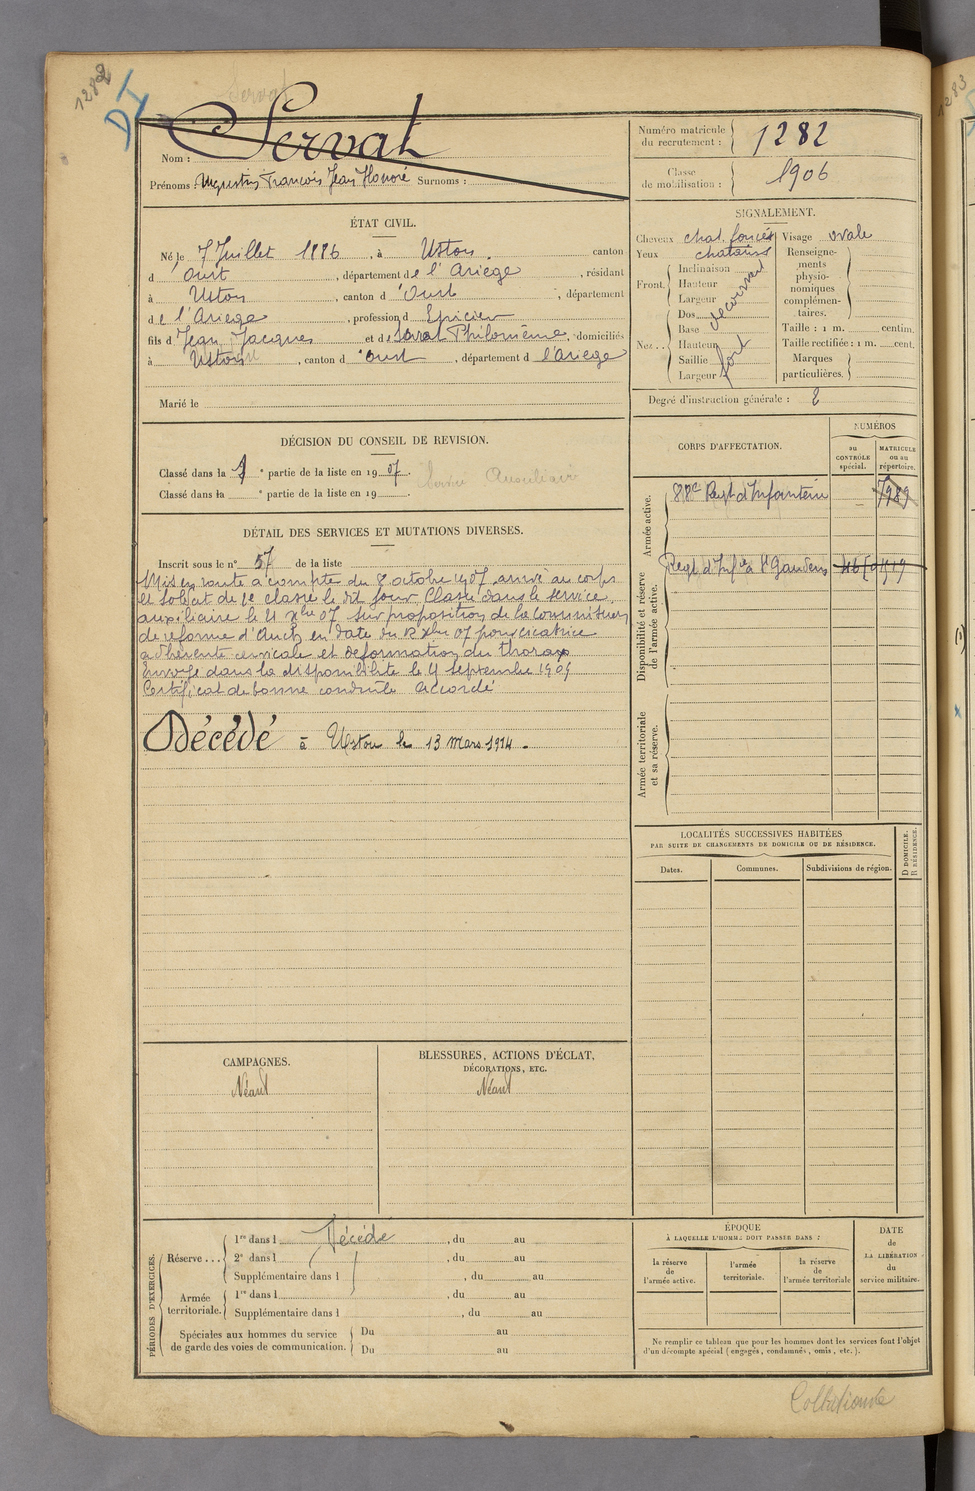 1282
DI
Servat
Servat
Nom :
Prénoms : Augustin François Jean Honoré Surnoms :
Numéro matricule du recrutement : 1282
Classe de mobilisation : 1906
ÉTAT CIVIL.
Né le 7 Juillet 1886, à Ustou canton
d'Oust, département de l'Ariege, résidant
à Ustou, canton d'Oust, département
de l'Ariege, profession d Epicier
fils d Jean Jacques et de Philomène, domiciliés
à Ustou, canton d'Oust, département d l'ariege
Marié le
SIGNALEMENT.
Cheveux chat. foncés
Yeux chatains
Front. Inclinaison
Hauteur
Largeur
Nez.. Dos
Base
Hauteur fort
Saillie
Largeur
Visage ovale
Renseignements physionomiques complémentaires.
Taille : 1 m. centim.
Taille rectifiée : 1 m. cent.
Marques particulières.
Degré d'instruction générale : 2
DÉCISION DU CONSEIL DE REVISION.
Classé dans la 1 e partie de la liste en 1907.
Service Auxiliaire
Classé dans la e partie de la liste en 19
DÉTAIL DES SERVICES ET MUTATIONS DIVERSES.
Inscrit sous le n° 57 de la liste
Mis en route a compter du 8 octobre 1907 arrivé au corps
et soldat de 2e classe le dit jour. Classé dans le service
auxiliaire le 21 Xbre 07 sur proposition de la commission
de reforme d'Auch en date du 12 Xbre 07 pour cicatrice
adhérente cervicale et déformation du thorax
Envoyé dans la disponibilité le 4 septembre 1909
Certificat de bonne conduite accordé
Décédé à Ustou le 13 mars 1914.
CORPS D'AFFECTATION.
NUMÉROS
au CONTRÔLE spécial.
MATRICULE ou au répertoire.
Armée active.
88e Regt d'Infanterie 7989
Disponibilité et réserve de l'armée active.
Regt d'Infie à St Gaudens
Armée territoriale et sa réserve.
LOCALITÉS SUCCESSIVES HABITÉES
PAR SUITE DE CHANGEMENTS DE DOMICILE OU DE RÉSIDENCE.
Dates.
Communes.
Subdivisions de région.
D DOMICILE.
R RÉSIDENCE.
CAMPAGNES.
Néant
BLESSURES, ACTIONS D'ÉCLAT,
DÉCORATIONS, ETC.
Néant
PÉRIODES D'EXERCICES.
Réserve ... 1re dans l Décédé, du au
2e dans l, du au
Supplémentaire dans l, du au
Armée territoriale. 1re dans l, du au
Supplémentaire dans l, du au
Spéciales aux hommes du service de garde des voies de communication. Du au
Du au
ÉPOQUE
À LAQUELLE L'HOMME DOIT PASSER DANS :
la réserve de l'armée active.
l'armée territoriale.
la réserve de l'armée territoriale
DATE de LA LIBÉRATION du service militaire.
Ne remplir ce tableau que pour les hommes dont les services font l'objet
d'un décompte spécial (engagés, condamnés, omis, etc.).
Collationné
1283